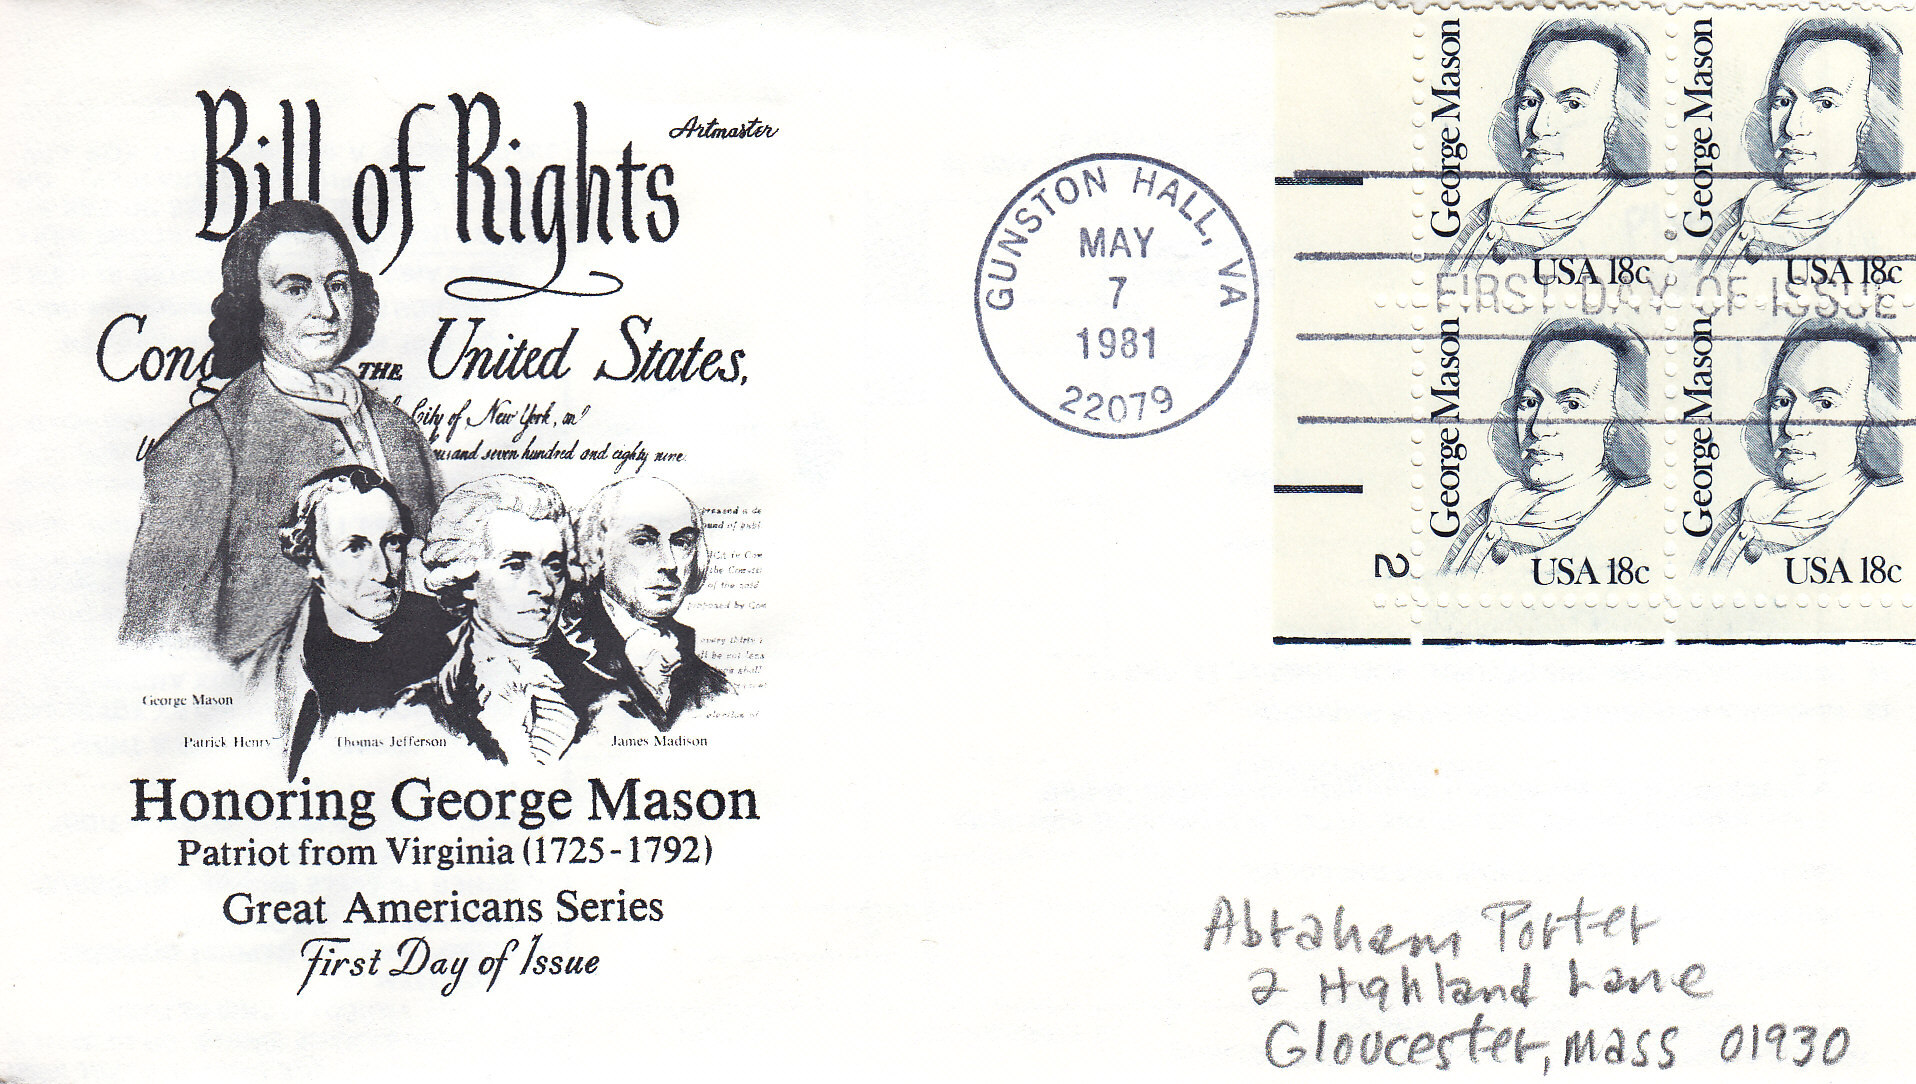 Bill of Rights
Artmaster
Cong THE United States,
City of New York, on
thousand seven hundred and eighty nine
George Mason
Patrick Henry
Thomas Jefferson
James Madison
Honoring George Mason
Patriot from Virginia (1725-1792)
Great Americans Series
First Day of Issue
GUNSTON HALL, VA
MAY
7
1981
22079
George Mason
USA 18c
George Mason
USA 18c
FIRST DAY OF ISSUE
George Mason
USA 18c
George Mason
USA 18c
2
Abraham Porter
2 Highland Lane
Gloucester, Mass 01930